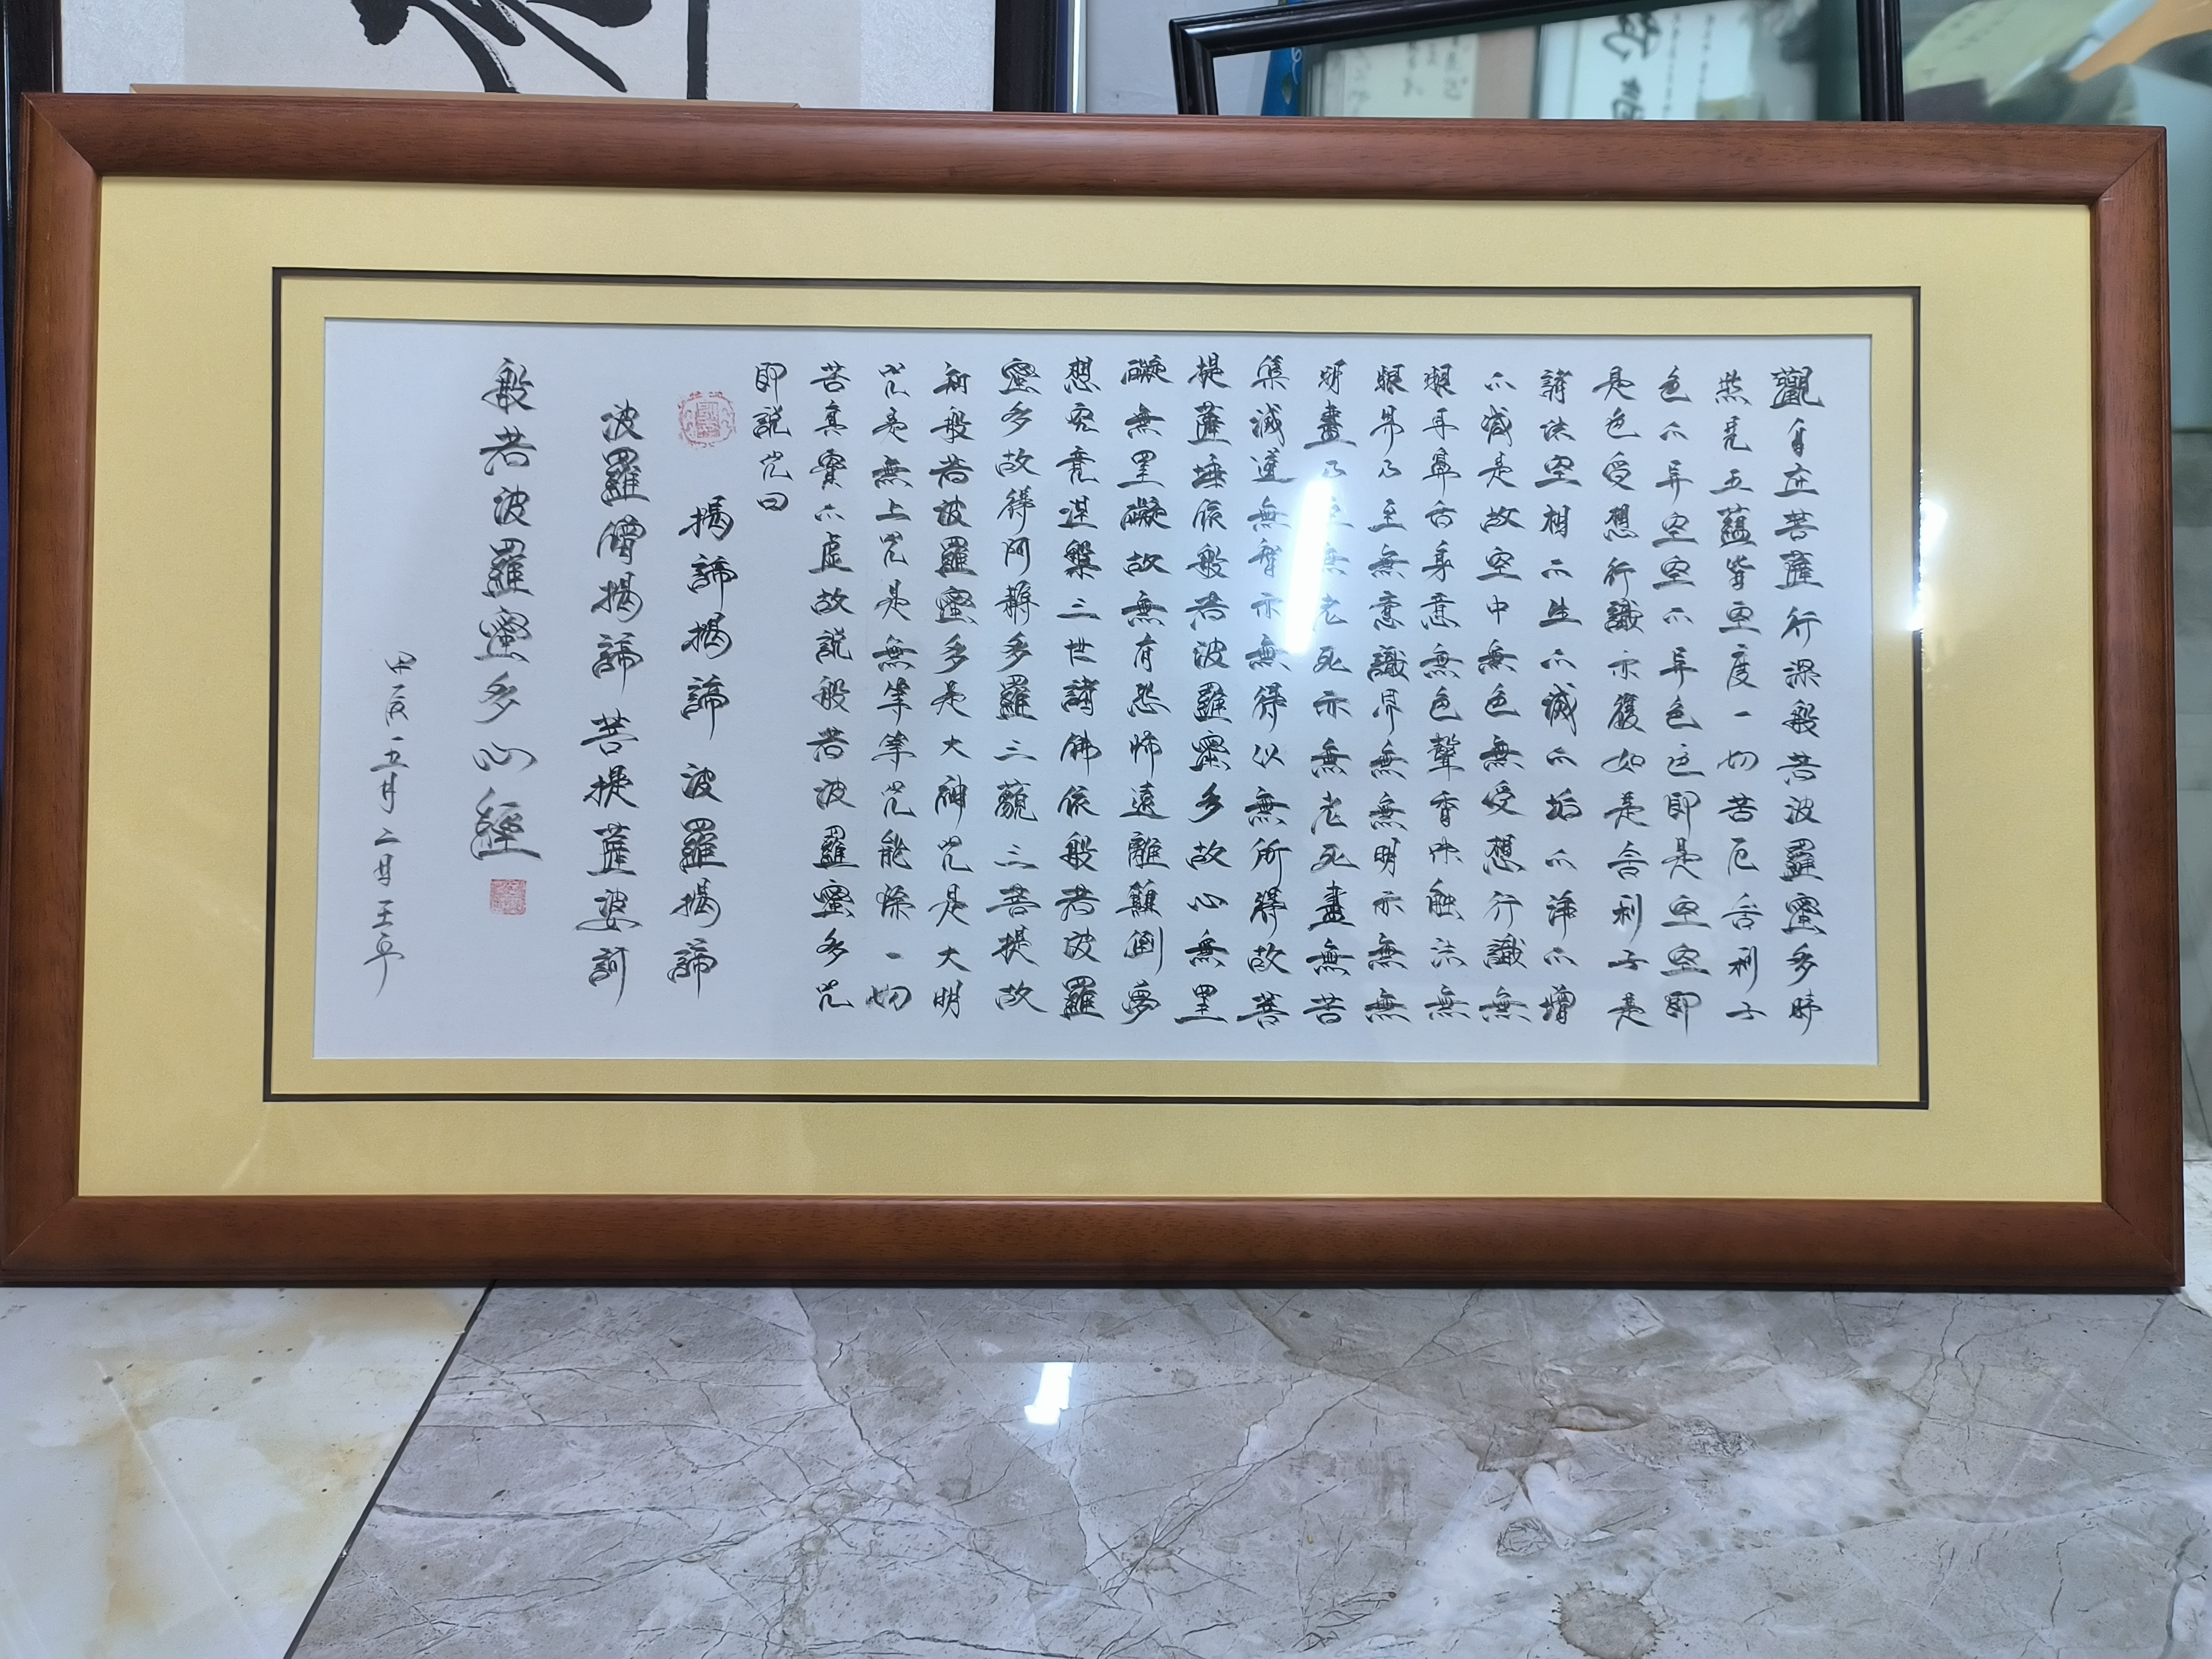 觀自在菩薩行深般若波羅蜜多時
照見五蘊皆空度一切苦厄舍利子
色不异空空不异色色即是空空即
是色受想行識亦復如是舍利子是
諸法空相不生不滅不垢不净不增
不减是故空中無色無受想行識無
眼耳鼻舌身意無色聲香味触法無
眼界乃至無意識界無無明亦無無
明盡乃至無老死亦無老死盡無苦
集滅道無智亦無得以無所得故菩
提薩埵依般若波羅蜜多故心無罣
礙無罣礙故無有恐怖遠離顛倒夢
想究竟涅槃三世諸佛依般若波羅
蜜多故得阿耨多羅三藐三菩提故
知般若波羅蜜多是大神咒是大明
咒是無上咒是無等等咒能除一切
苦真實不虛故説般若波羅蜜多咒
即説咒曰
揭諦揭諦波羅揭諦
波羅僧揭諦菩提薩婆訶
般若波羅蜜多心經
甲辰五月二日王平